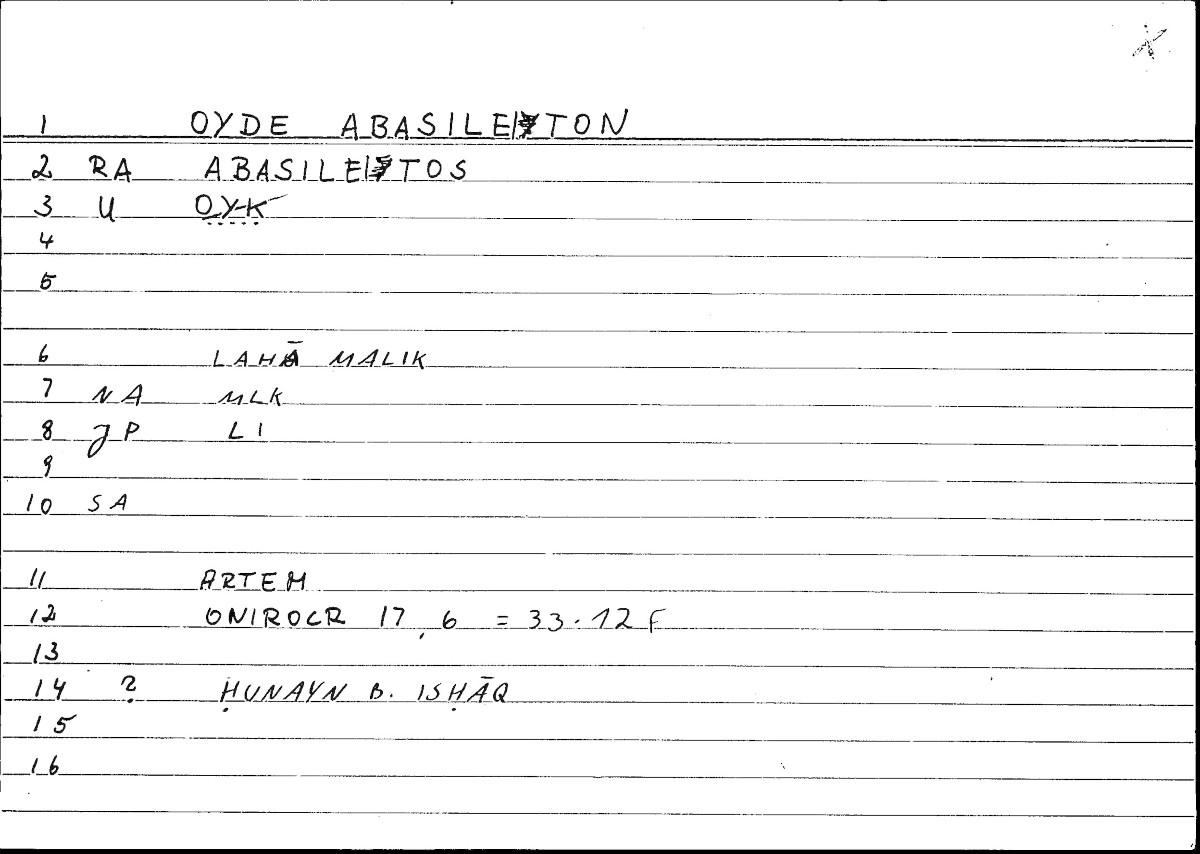 X
1 OYDE ABASILEITON
2 RA ABASILEITOS
3 U OYK
4
5
6 LAHĀ MALIK
7 NA MLK
8 JP LI
9
10 SA
11 ARTEM
12 ONIROCR 17,6 = 33.12 F
13
14 ? ḤUNAYN B. ISḤĀQ
15
16